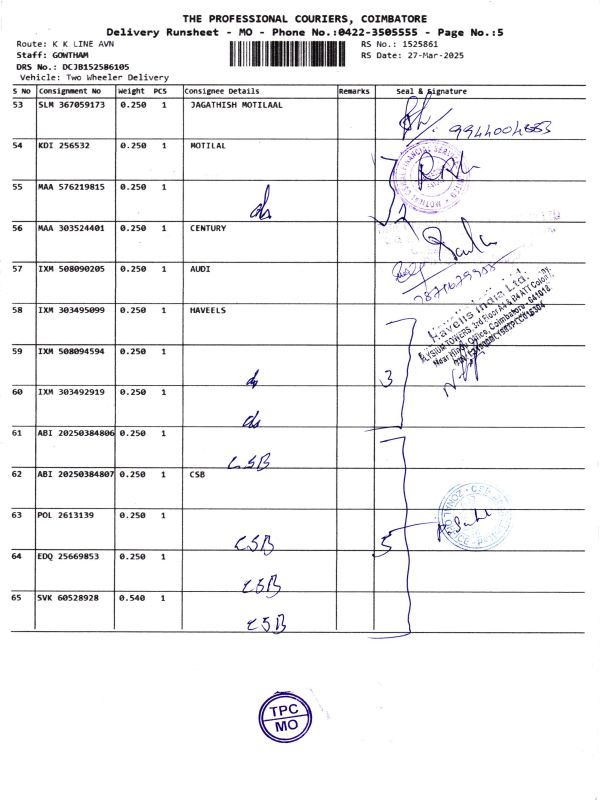 THE PROFESSIONAL COURIERS, COIMBATORE
Delivery Runsheet - MO - Phone No.:0422-3505555 - Page No.:5
Route: K K LINE AVN
RS No.: 1525861
Staff: GOWTHAM
RS Date: 27-Mar-2025
DRS No.: DCJB152586105
Vehicle: Two Wheeler Delivery
S No Consignment No Weight PCS Consignee Details Remarks Seal & Signature
53 SLM 367059173 0.250 1 JAGATHISH MOTILAAL
54 KDI 256532 0.250 1 MOTILAL
55 MAA 576219815 0.250 1 ds
2
56 MAA 303524401 0.250 1 CENTURY
57 IXM 508090205 0.250 1 AUDI
58 IXM 303495099 0.250 1 HAVEELS
Havells India Ltd.
59 IXM 508094594 0.250 1 ds
3
60 IXM 303492919 0.250 1 ds
61 ABI 20250384806 0.250 1 CSB
62 ABI 20250384807 0.250 1 CSB
63 POL 2613139 0.250 1 CSB
5
64 EDQ 25669853 0.250 1 CSB
65 SVK 60528928 0.540 1 CSB
TPC
MO